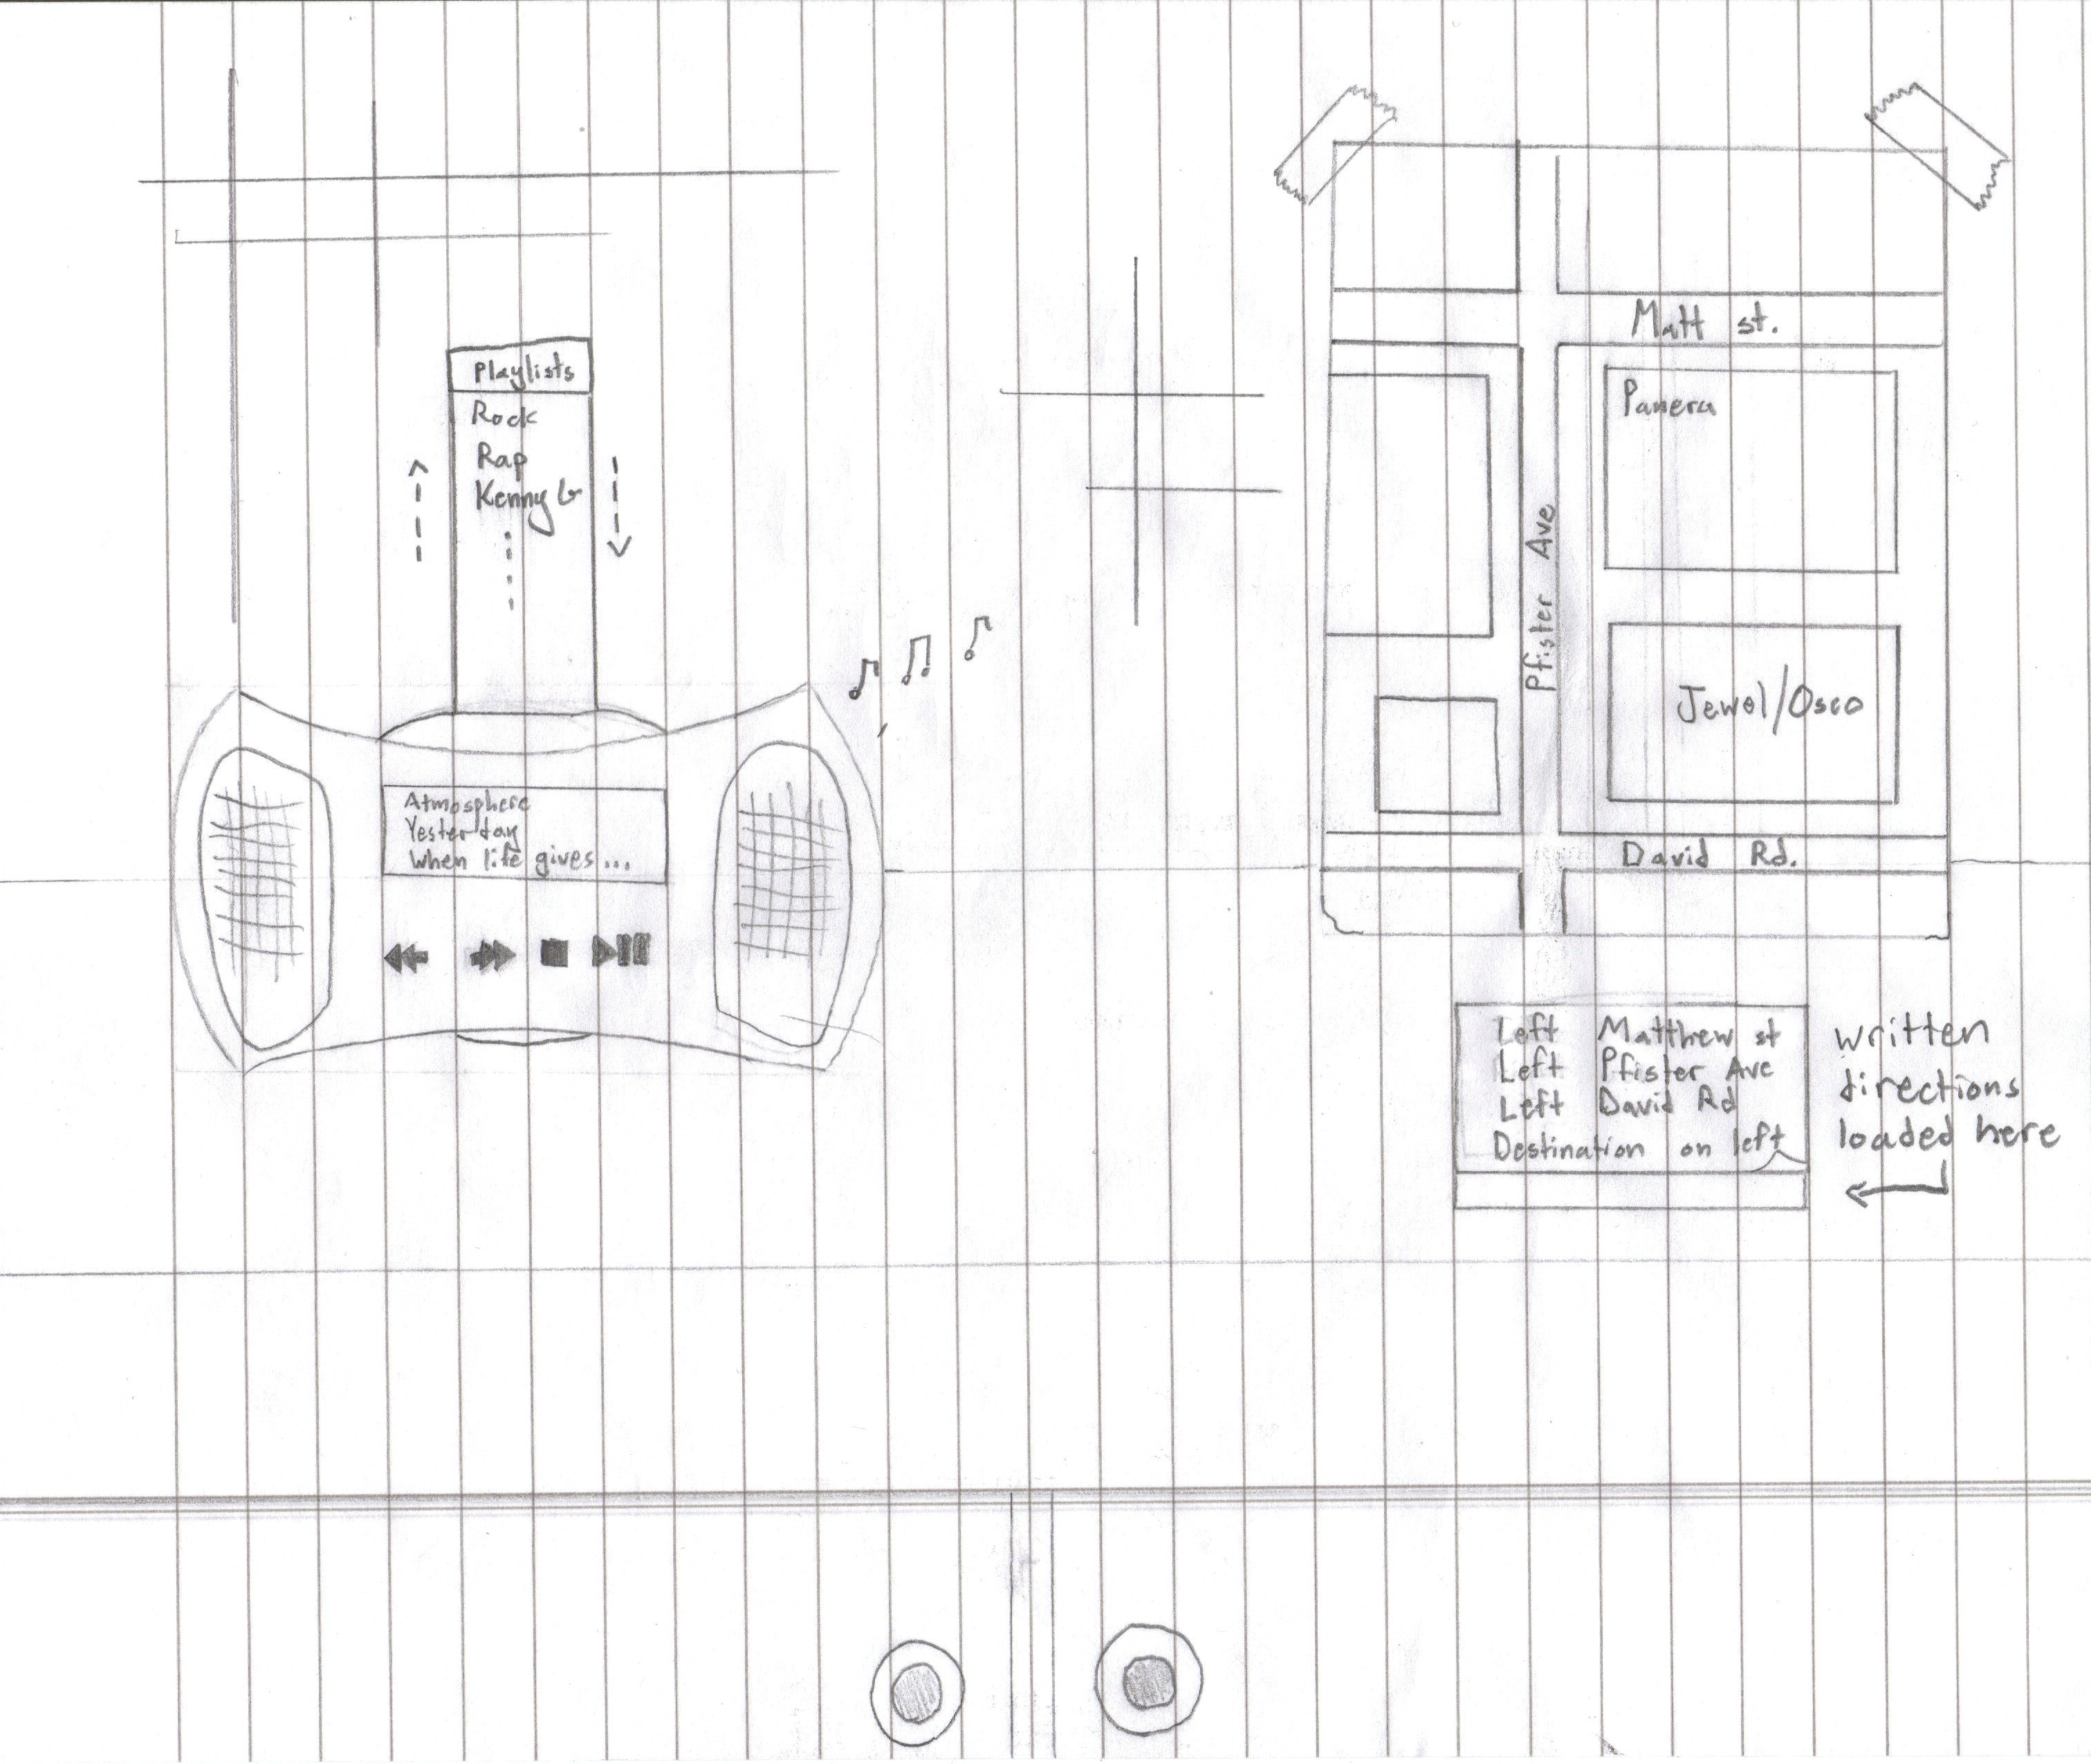 Playlists
Rock
Rap
Kenny G
Atmosphere
Yesterday
When life gives...
Matt st.
Panera
Pfister Ave
Jewel/Osco
David Rd.
Left Matthew st
Left Pfister Ave
Left David Rd
Destination on left
written
directions
loaded here